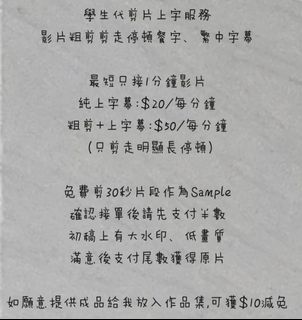 學生代剪片上字服務
影片粗剪剪走停頓餐字、繁中字幕
最短只接1分鐘影片
純上字幕:$20/每分鐘
粗剪+上字幕:$50/每分鐘
(只剪走明顯長停頓)
免費剪30秒片段作為Sample
確認接單後請先支付半數
初稿上有大水印、低畫質
滿意後支付尾數獲得原片
如願意提供成品給我放入作品集,可獲$10減免